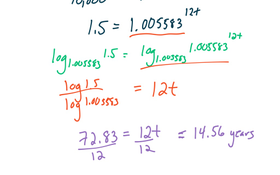 10,000
1.5 = 1.005583^12t
log_1.005583 1.5 = log_1.005583 1.005583^12t
log 1.5 / log 1.005583 = 12t
72.83 / 12 = 12t / 12 = 14.56 years